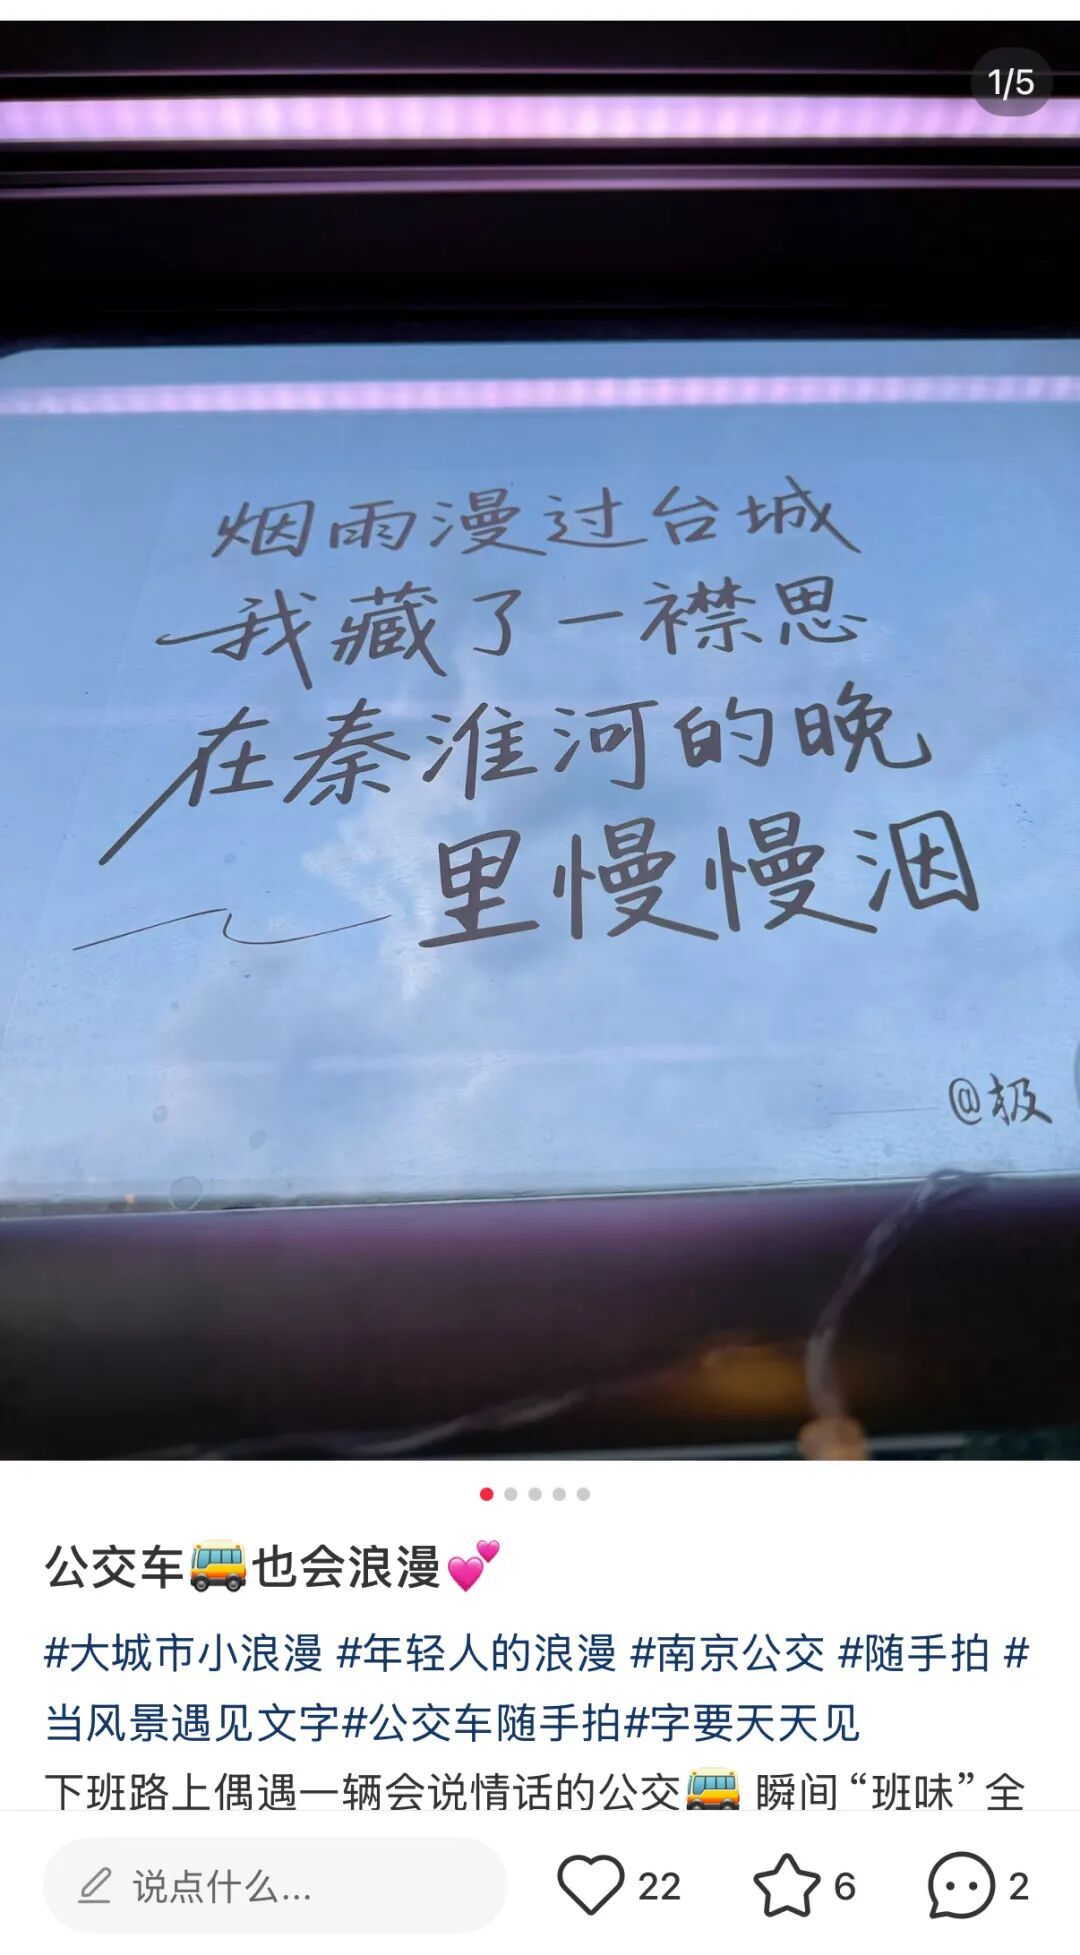 1/5
烟雨漫过台城
我藏了一襟思
在秦淮河的晚
里慢慢洇
@极
公交车🚌也会浪漫💕
#大城市小浪漫 #年轻人的浪漫 #南京公交 #随手拍 #
当风景遇见文字#公交车随手拍#字要天天见
下班路上偶遇一辆会说情话的公交🚌 瞬间“班味”全
说点什么...
22
6
2